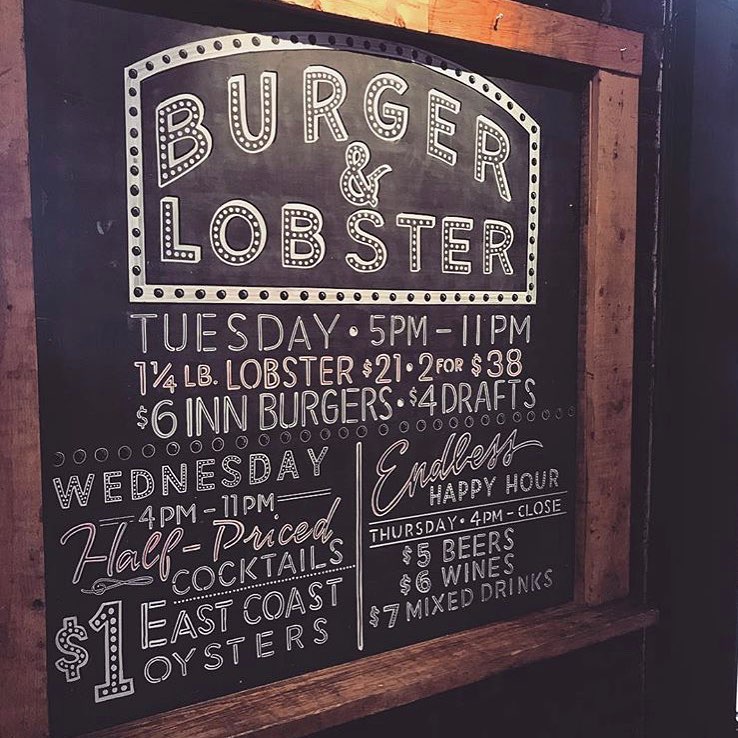 BURGER
&
LOBSTER
TUESDAY • 5PM – 11PM
1¼ LB. LOBSTER $21 • 2 FOR $38
$6 INN BURGERS • $4 DRAFTS
WEDNESDAY
4PM – 11PM
Half-Priced
COCKTAILS
$1 EAST COAST
OYSTERS
Endless
HAPPY HOUR
THURSDAY • 4PM – CLOSE
$5 BEERS
$6 WINES
$7 MIXED DRINKS